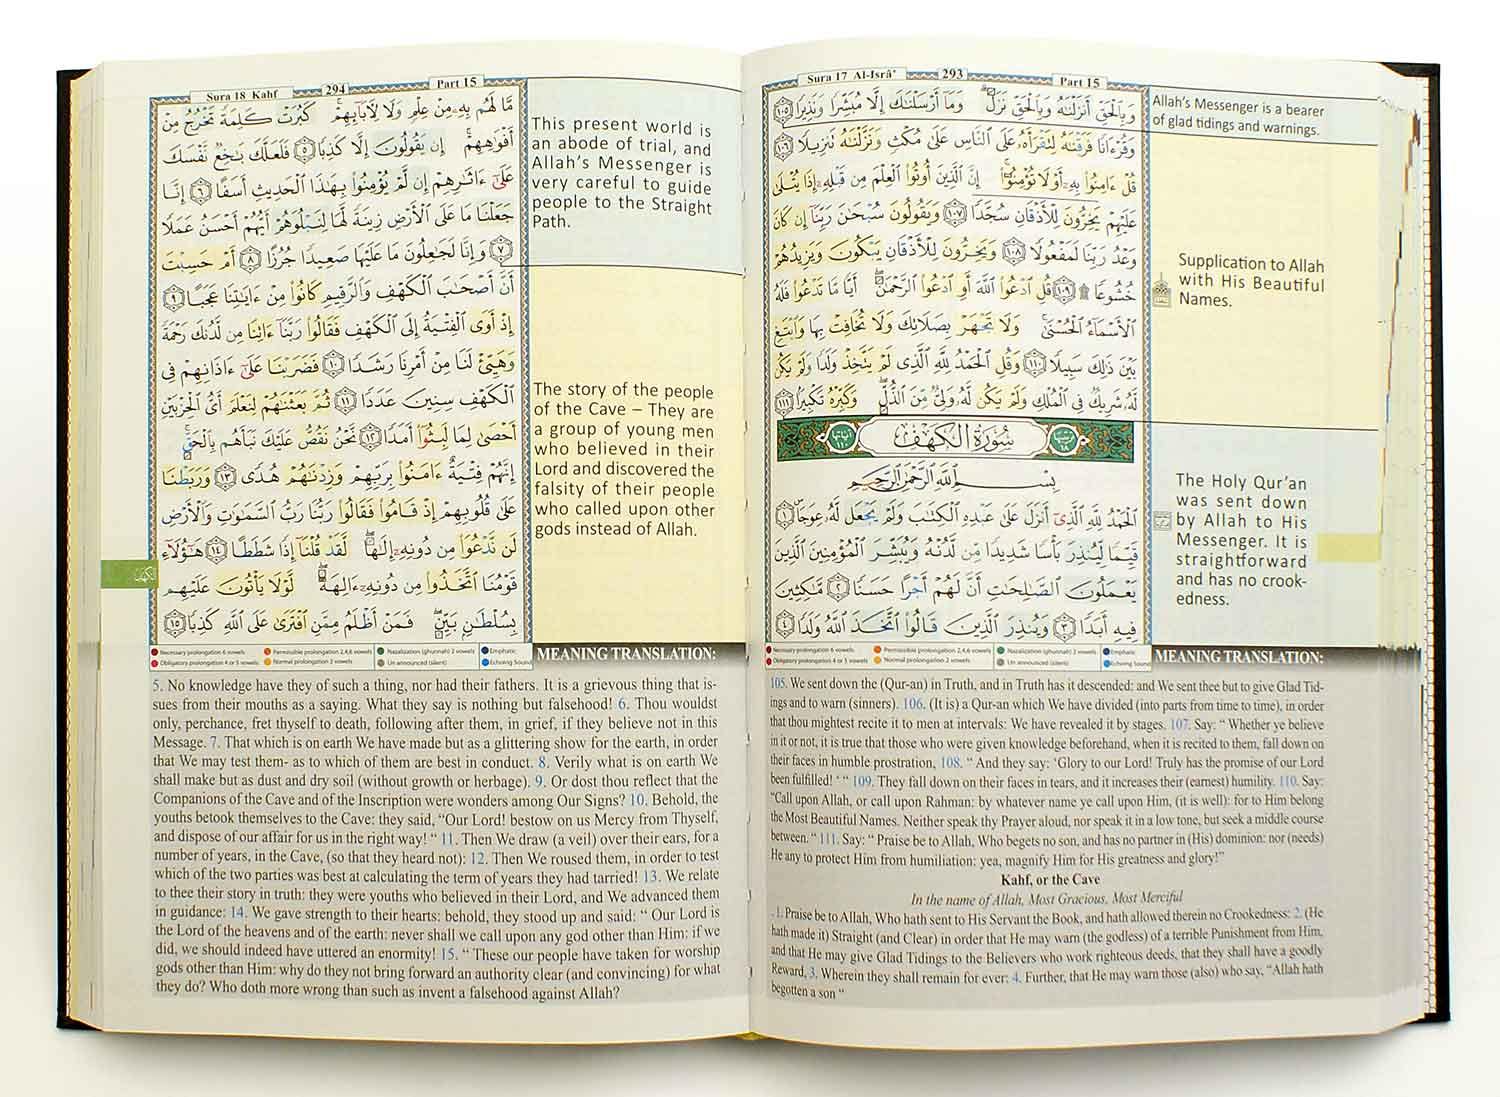 Sura 17 Al-Isrâ' 293 Part 15
وَبِالْحَقِّ أَنزَلْنَٰهُ وَبِالْحَقِّ نَزَلَ ۗ وَمَآ أَرْسَلْنَٰكَ إِلَّا مُبَشِّرًا وَنَذِيرًا ١٠٥
وَقُرْءَانًا فَرَقْنَٰهُ لِتَقْرَأَهُۥ عَلَى النَّاسِ عَلَىٰ مُكْثٍ وَنَزَّلْنَٰهُ تَنزِيلًا ١٠٦
قُلْ ءَامِنُوا۟ بِهِۦٓ أَوْ لَا تُؤْمِنُوٓا۟ ۚ إِنَّ الَّذِينَ أُوتُوا۟ الْعِلْمَ مِن قَبْلِهِۦٓ إِذَا يُتْلَىٰ
عَلَيْهِمْ يَخِرُّونَ لِلْأَذْقَانِ سُجَّدًا ١٠٧ وَيَقُولُونَ سُبْحَٰنَ رَبِّنَآ إِن كَانَ
وَعْدُ رَبِّنَا لَمَفْعُولًا ١٠٨ وَيَخِرُّونَ لِلْأَذْقَانِ يَبْكُونَ وَيَزِيدُهُمْ
خُشُوعًا ۩ ١٠٩ قُلِ ادْعُوا۟ اللَّهَ أَوِ ادْعُوا۟ الرَّحْمَٰنَ ۖ أَيًّا مَّا تَدْعُوا۟ فَلَهُ
الْأَسْمَآءُ الْحُسْنَىٰ ۚ وَلَا تَجْهَرْ بِصَلَاتِكَ وَلَا تُخَافِتْ بِهَا وَابْتَغِ
بَيْنَ ذَٰلِكَ سَبِيلًا ١١٠ وَقُلِ الْحَمْدُ لِلَّهِ الَّذِى لَمْ يَتَّخِذْ وَلَدًا وَلَمْ يَكُن
لَّهُۥ شَرِيكٌ فِى الْمُلْكِ وَلَمْ يَكُن لَّهُۥ وَلِىٌّ مِّنَ الذُّلِّ ۖ وَكَبِّرْهُ تَكْبِيرًۢا ١١١
سُورَةُ الْكَهْفِ
بِسْمِ اللَّهِ الرَّحْمَٰنِ الرَّحِيمِ
الْحَمْدُ لِلَّهِ الَّذِىٓ أَنزَلَ عَلَىٰ عَبْدِهِ الْكِتَٰبَ وَلَمْ يَجْعَل لَّهُۥ عِوَجَا ۜ ١
قَيِّمًا لِّيُنذِرَ بَأْسًا شَدِيدًا مِّن لَّدُنْهُ وَيُبَشِّرَ الْمُؤْمِنِينَ الَّذِينَ
يَعْمَلُونَ الصَّٰلِحَٰتِ أَنَّ لَهُمْ أَجْرًا حَسَنًا ٢ مَّٰكِثِينَ
فِيهِ أَبَدًا ٣ وَيُنذِرَ الَّذِينَ قَالُوا۟ اتَّخَذَ اللَّهُ وَلَدًا ٤
Allah's Messenger is a bearer
of glad tidings and warnings.
Supplication to Allah
with His Beautiful
Names.
The Holy Qur'an
was sent down
by Allah to His
Messenger. It is
straightforward
and has no crook-
edness.
Necessary prolongation 6 vowels Permissible prolongation 2,4,6 vowels Nazalization (ghunnah) 2 vowels Emphatic
Obligatory prolongation 4 or 5 vowels Normal prolongation 2 vowels Un announced (silent) Echoing Sound
MEANING TRANSLATION:
105. We sent down the (Qur-an) in Truth, and in Truth has it descended: and We sent thee but to give Glad Tid-
ings and to warn (sinners). 106. (It is) a Qur-an which We have divided (into parts from time to time), in order
that thou mightest recite it to men at intervals: We have revealed it by stages. 107. Say: “ Whether ye believe
in it or not, it is true that those who were given knowledge beforehand, when it is recited to them, fall down on
their faces in humble prostration, 108. “ And they say: ‘Glory to our Lord! Truly has the promise of our Lord
been fulfilled! ‘ “ 109. They fall down on their faces in tears, and it increases their (earnest) humility. 110. Say:
“Call upon Allah, or call upon Rahman: by whatever name ye call upon Him, (it is well): for to Him belong
the Most Beautiful Names. Neither speak thy Prayer aloud, nor speak it in a low tone, but seek a middle course
between. “ 111. Say: “ Praise be to Allah, Who begets no son, and has no partner in (His) dominion: nor (needs)
He any to protect Him from humiliation: yea, magnify Him for His greatness and glory!”
Kahf, or the Cave
In the name of Allah, Most Gracious, Most Merciful
.1. Praise be to Allah, Who hath sent to His Servant the Book, and hath allowed therein no Crookedness: 2. (He
hath made it) Straight (and Clear) in order that He may warn (the godless) of a terrible Punishment from Him,
and that He may give Glad Tidings to the Believers who work righteous deeds, that they shall have a goodly
Reward, 3. Wherein they shall remain for ever: 4. Further, that He may warn those (also) who say, “Allah hath
begotten a son “
Sura 18 Kahf 294 Part 15
مَّا لَهُم بِهِۦ مِنْ عِلْمٍ وَلَا لِءَابَآئِهِمْ ۚ كَبُرَتْ كَلِمَةً تَخْرُجُ مِنْ
أَفْوَٰهِهِمْ ۚ إِن يَقُولُونَ إِلَّا كَذِبًا ٥ فَلَعَلَّكَ بَٰخِعٌ نَّفْسَكَ
عَلَىٰٓ ءَاثَٰرِهِمْ إِن لَّمْ يُؤْمِنُوا۟ بِهَٰذَا الْحَدِيثِ أَسَفًا ٦ إِنَّا
جَعَلْنَا مَا عَلَى الْأَرْضِ زِينَةً لَّهَا لِنَبْلُوَهُمْ أَيُّهُمْ أَحْسَنُ عَمَلًا
٧ وَإِنَّا لَجَٰعِلُونَ مَا عَلَيْهَا صَعِيدًا جُرُزًا ٨ أَمْ حَسِبْتَ
أَنَّ أَصْحَٰبَ الْكَهْفِ وَالرَّقِيمِ كَانُوا۟ مِنْ ءَايَٰتِنَا عَجَبًا ٩
إِذْ أَوَى الْفِتْيَةُ إِلَى الْكَهْفِ فَقَالُوا۟ رَبَّنَآ ءَاتِنَا مِن لَّدُنكَ رَحْمَةً
وَهَيِّئْ لَنَا مِنْ أَمْرِنَا رَشَدًا ١٠ فَضَرَبْنَا عَلَىٰٓ ءَاذَانِهِمْ فِى
الْكَهْفِ سِنِينَ عَدَدًا ١١ ثُمَّ بَعَثْنَٰهُمْ لِنَعْلَمَ أَىُّ الْحِزْبَيْنِ
أَحْصَىٰ لِمَا لَبِثُوٓا۟ أَمَدًا ١٢ نَّحْنُ نَقُصُّ عَلَيْكَ نَبَأَهُم بِالْحَقِّ ۚ
إِنَّهُمْ فِتْيَةٌ ءَامَنُوا۟ بِرَبِّهِمْ وَزِدْنَٰهُمْ هُدًى ١٣ وَرَبَطْنَا
عَلَىٰ قُلُوبِهِمْ إِذْ قَامُوا۟ فَقَالُوا۟ رَبُّنَا رَبُّ السَّمَٰوَٰتِ وَالْأَرْضِ
لَن نَّدْعُوَا۟ مِن دُونِهِۦٓ إِلَٰهًا ۖ لَّقَدْ قُلْنَآ إِذًا شَطَطًا ١٤ هَٰٓؤُلَآءِ
قَوْمُنَا اتَّخَذُوا۟ مِن دُونِهِۦٓ ءَالِهَةً ۖ لَّوْلَا يَأْتُونَ عَلَيْهِم
بِسُلْطَٰنٍۭ بَيِّنٍ ۖ فَمَنْ أَظْلَمُ مِمَّنِ افْتَرَىٰ عَلَى اللَّهِ كَذِبًا ١٥
الكهف
This present world is
an abode of trial, and
Allah's Messenger is
very careful to guide
people to the Straight
Path.
The story of the people
of the Cave – They are
a group of young men
who believed in their
Lord and discovered the
falsity of their people
who called upon other
gods instead of Allah.
Necessary prolongation 6 vowels Permissible prolongation 2,4,6 vowels Nazalization (ghunnah) 2 vowels Emphatic
Obligatory prolongation 4 or 5 vowels Normal prolongation 2 vowels Un announced (silent) Echoing Sound
MEANING TRANSLATION:
5. No knowledge have they of such a thing, nor had their fathers. It is a grievous thing that is-
sues from their mouths as a saying. What they say is nothing but falsehood! 6. Thou wouldst
only, perchance, fret thyself to death, following after them, in grief, if they believe not in this
Message. 7. That which is on earth We have made but as a glittering show for the earth, in order
that We may test them- as to which of them are best in conduct. 8. Verily what is on earth We
shall make but as dust and dry soil (without growth or herbage). 9. Or dost thou reflect that the
Companions of the Cave and of the Inscription were wonders among Our Signs? 10. Behold, the
youths betook themselves to the Cave: they said, “Our Lord! bestow on us Mercy from Thyself,
and dispose of our affair for us in the right way! “ 11. Then We draw (a veil) over their ears, for a
number of years, in the Cave, (so that they heard not): 12. Then We roused them, in order to test
which of the two parties was best at calculating the term of years they had tarried! 13. We relate
to thee their story in truth: they were youths who believed in their Lord, and We advanced them
in guidance: 14. We gave strength to their hearts: behold, they stood up and said: “ Our Lord is
the Lord of the heavens and of the earth: never shall we call upon any god other than Him: if we
did, we should indeed have uttered an enormity! 15. “ These our people have taken for worship
gods other than Him: why do they not bring forward an authority clear (and convincing) for what
they do? Who doth more wrong than such as invent a falsehood against Allah?